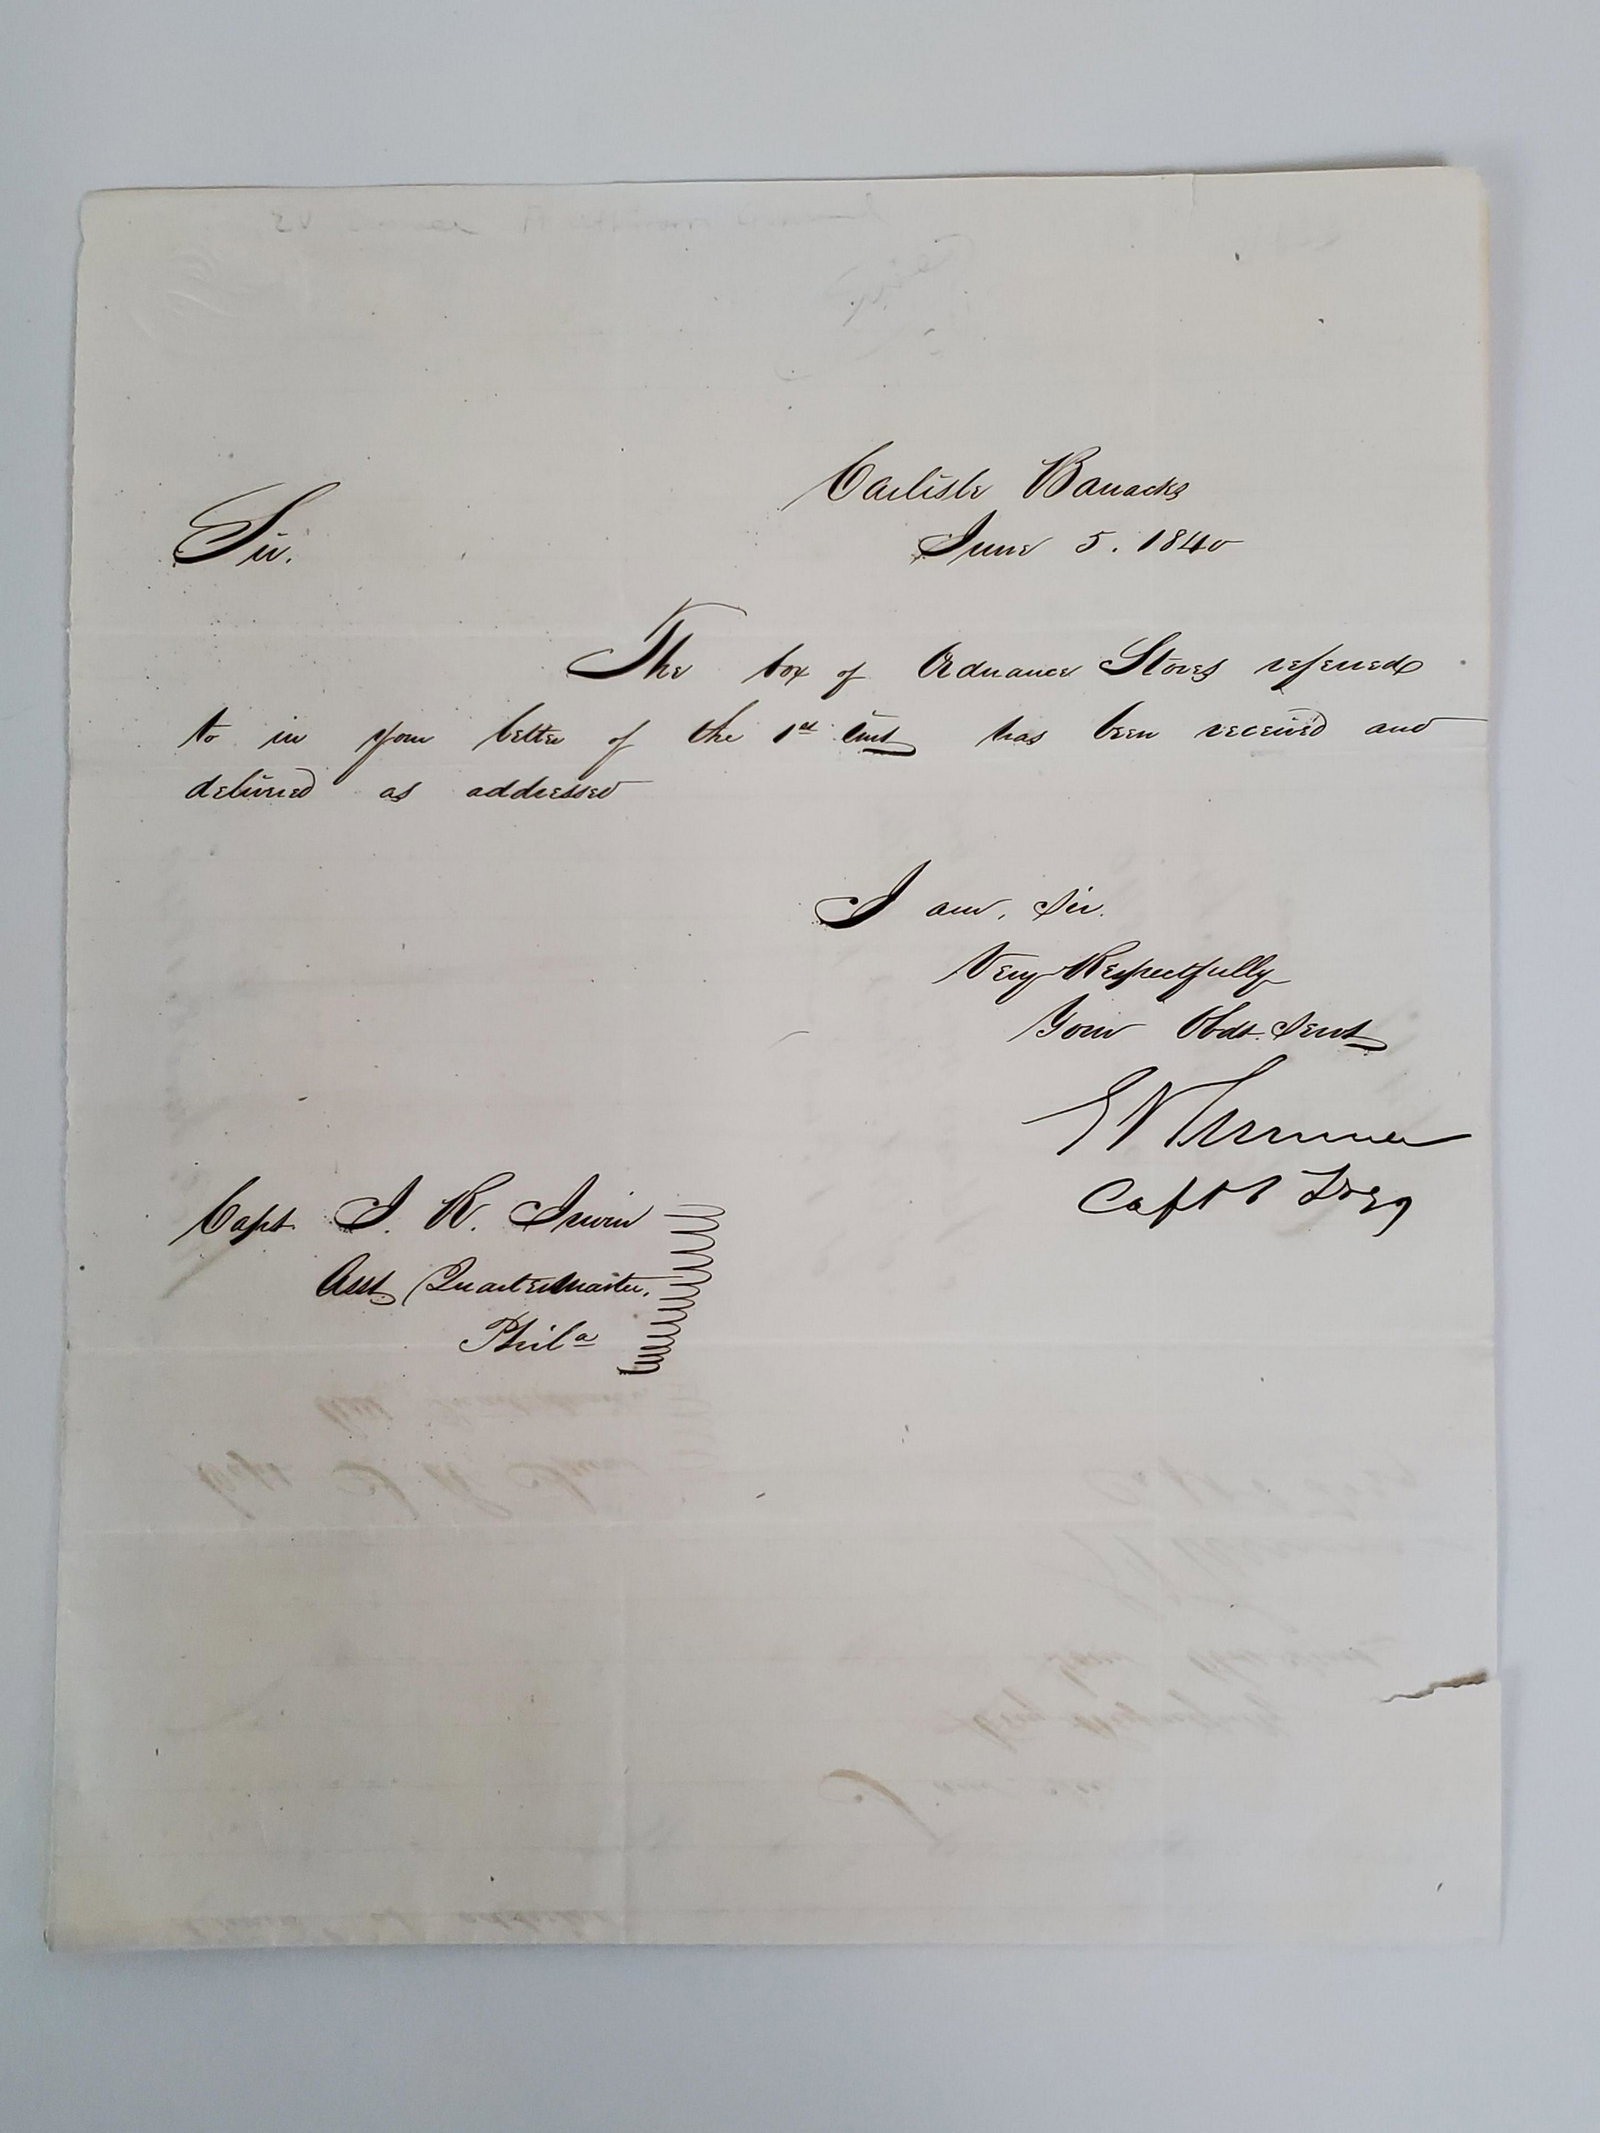 Carlisle Barracks
June 5. 1840
Sir.
The box of Ordnance Stores referred
to in your letter of the 1st Inst has been received and
delivered as addressed
I am, Sir.
Very Respectfully
Your Obdt. Servt
E V Sumner
Capt 1 Drag
Capt. J. R. Irwin
Asst Quartermaster.
Phila